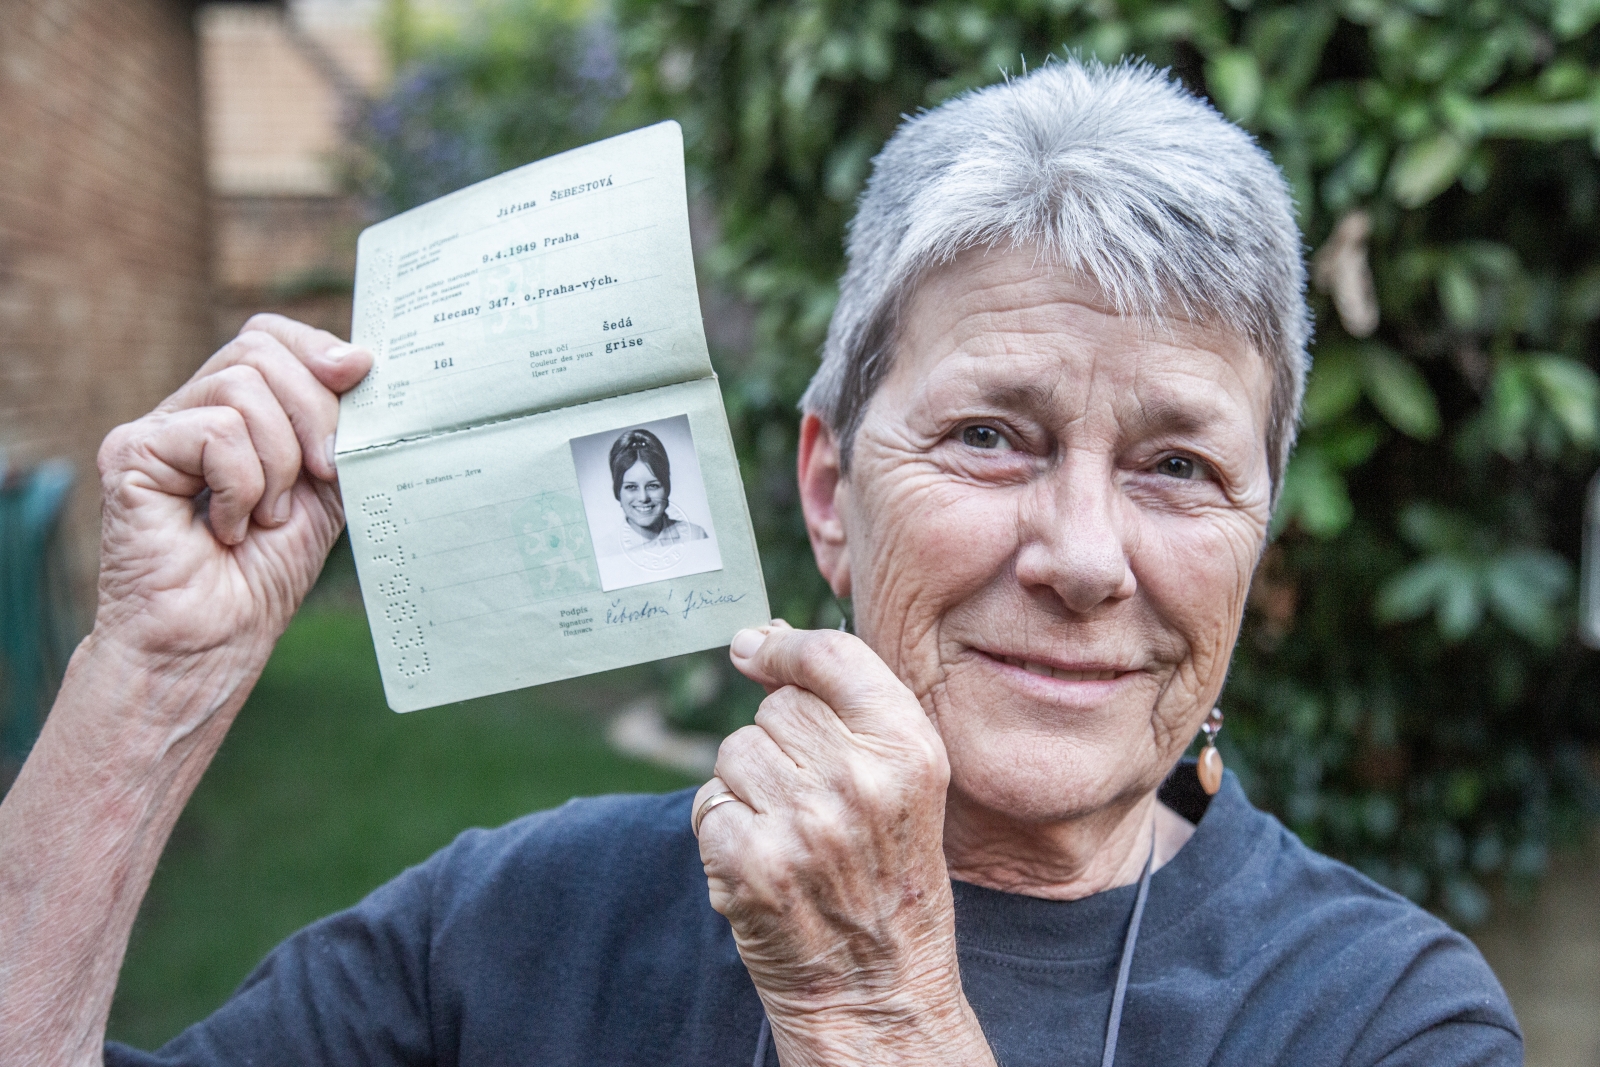 Jiřina ŠEBESTOVÁ
9.4.1949 Praha
Klecany 347, o.Praha-vých.
Výška
Taille
Рост
161
Barva očí
Couleur des yeux
Цвет глаз
šedá
grise
Děti — Enfants — Дети
1.
2.
3.
4.
Podpis
Signature
Подпись
Šebestová Jiřina